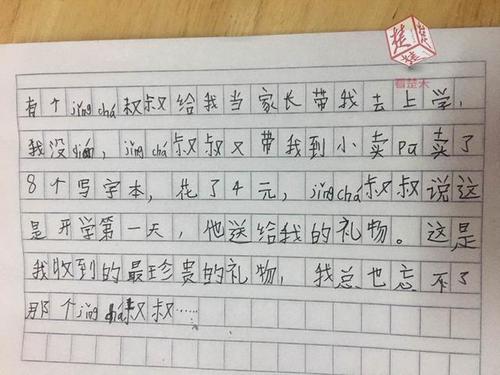 楚
看楚天
有个jǐng chá叔叔给我当家长带我去上学，
我没diàn，jǐng chá叔叔又带我到小卖pù卖了
8个写字本，花了4元，jǐng chá叔叔说这
是开学第一天，他送给我的礼物。这是
我收到的最珍贵的礼物，我总也忘不了
那个jǐng chá叔叔……